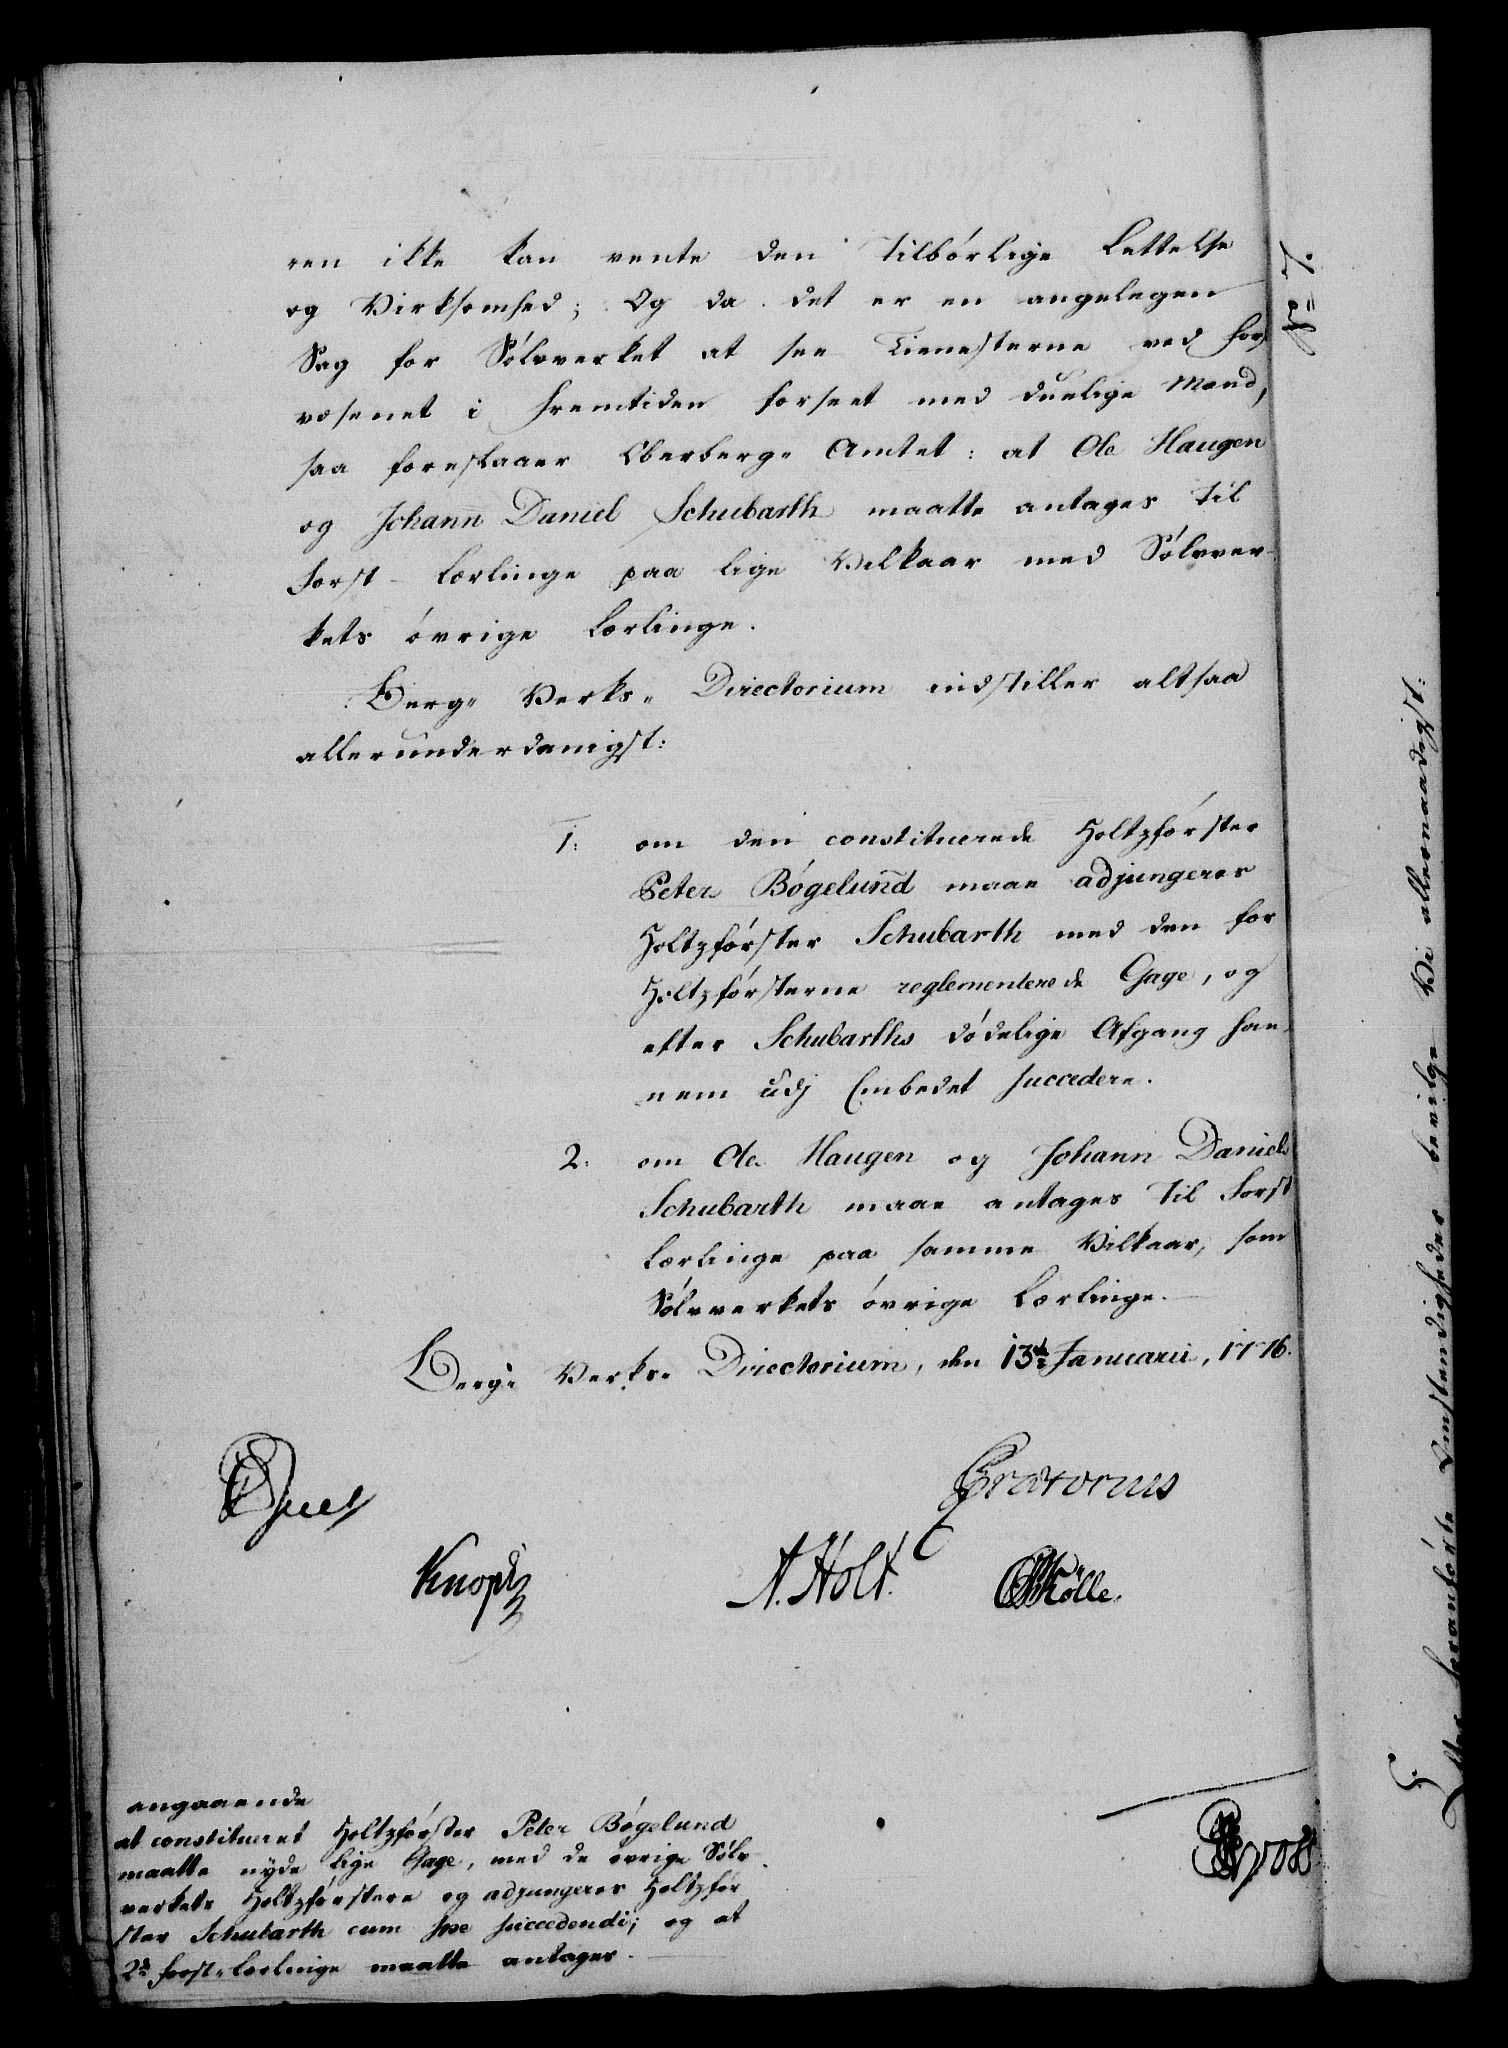 ren ikke kan vente den tilbørlige Lettelse
og Virksomhed; Og da det er en angelegen
Sag for Sølvverket at see Tienesterne ved For
væsenet i Fremtiden forseet med duelige Mænd,
saa foreslaaer Oberberg- Amtet: at Ole Haugen
og Johann Daniel Schubarth maatte antages til
Forst- Lærlinge paa lige Vilkaar med Sølvver-
kets øvrige Lærlinge.
Berg- Verks- Directorium indstiller altsaa
allerunderdanigst:
1: om den constituerede Holtzførster
Peter Bøgelund maae adjungeres
Holtzførster Schubarth med den for
Holtzførsterne reglementerede Gage, og
efter Schubarths dødelige Afgang han-
nem udj Embedet succedere.
2: om Ole Haugen og Johann Daniel
Schubarth maae antages til Forst
Lærlinge paa samme Vilkaar, som
Sølvverkets øvrige Lærlinge.
Berg- Verks- Directorium, den 13de Januarii, 1776.
Juel
Prætorius
Knoph
A. Holt.
Mølle.
angaaende
at constitueret Holtzførster Peter Bøgelund
maatte nyde lige Gage, med de øvrige Sølv-
verkets Holtzførstere og adjungeres Holtzfør
ster Schubarth cum spe succedendi; og at
2de Forst-Lærlinge maatte antages.
No 7.
Efter foranførte Omstændigheder bevilge Vi allernaadigst: